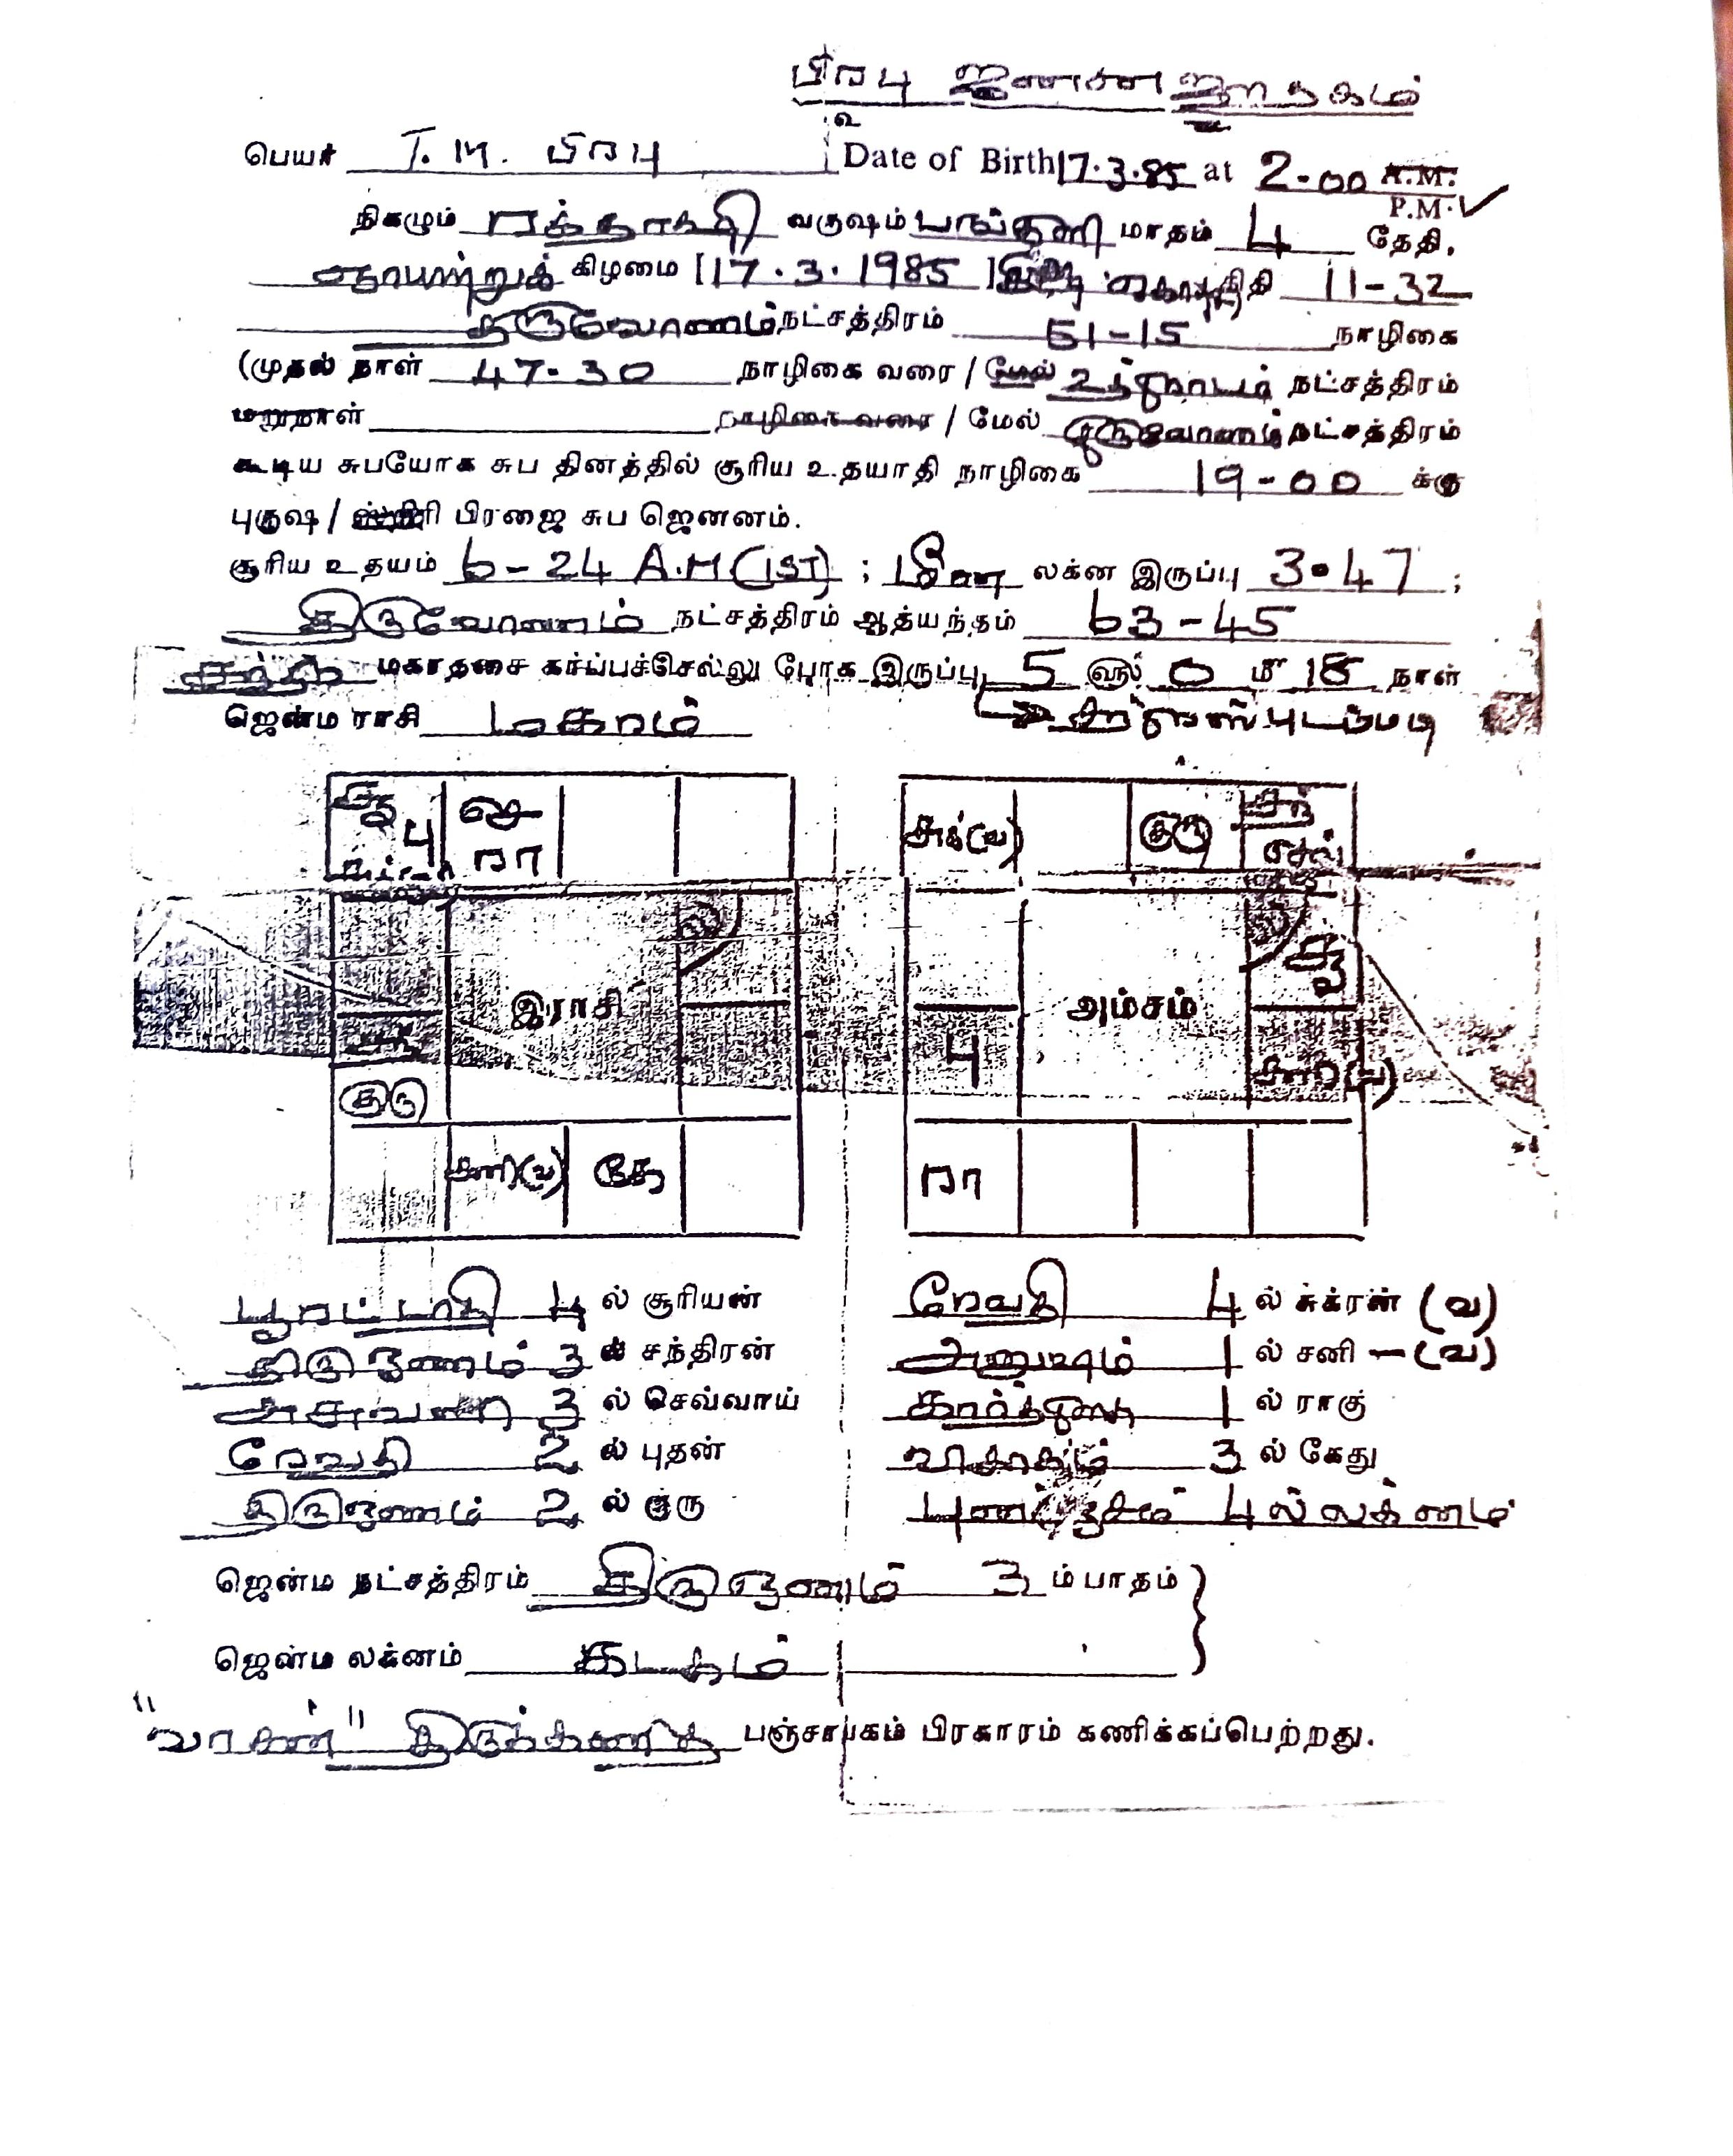 பிரபு ஜனன ஜாதகம்
பெயர் T. M. பிரபு Date of Birth 17.3.85 at 2-00 A.M.
P.M. ✓
நிகழும் ரக்தாக்ஷி வருஷம் பங்குனி மாதம் 4 தேதி,
ஞாயற்றுக் கிழமை [17.3.1985] திதி 11-32
திருவோணம் நட்சத்திரம் 51-15 நாழிகை
(முதல் நாள் 47-30 நாழிகை வரை / மேல் உத்திராடம் நட்சத்திரம்
மறுநாள் நாழிகை வரை / மேல் திருவோணம் நட்சத்திரம்
கூடிய சுபயோக சுப தினத்தில் சூரிய உதயாதி நாழிகை 19-00 க்கு
புருஷ / ஸ்திரி பிரஜை சுப ஜெனனம்.
சூரிய உதயம் 6-24 A.M (IST) ; மீன லக்ன இருப்பு 3.47 ;
திருவோணம் நட்சத்திரம் ஆத்யந்தம் 63-45
சந்திர மகாதசை கர்ப்பச்செல்லு போக இருப்பு 5 வரு 0 மீ 18 நாள்
ஜென்ம ராசி மகரம்
சூ பு செ ரா
சுக்(வ) குரு சந் செவ்
ல ல சூ
இராசி அம்சம்
சந் குரு பு சனி(வ)
சனி(வ) கே ரா
பூரட்டாதி 4 ல் சூரியன் ரேவதி 4 ல் சுக்ரன் (வ)
திருஓணம் 3 ல் சந்திரன் அனுஷம் 1 ல் சனி - (வ)
அசுவனி 3 ல் செவ்வாய் கார்த்திகை 1 ல் ராகு
ரேவதி 2 ல் புதன் விசாகம் 3 ல் கேது
திருஓணம் 2 ல் குரு புனர்பூசம் 4 ல் லக்ணம்
ஜென்ம நட்சத்திரம் திருஓணம் 3 ம் பாதம்
ஜென்ம லக்னம் கடகம்
"வாசன்" திருக்கணித பஞ்சாங்கம் பிரகாரம் கணிக்கப்பெற்றது.